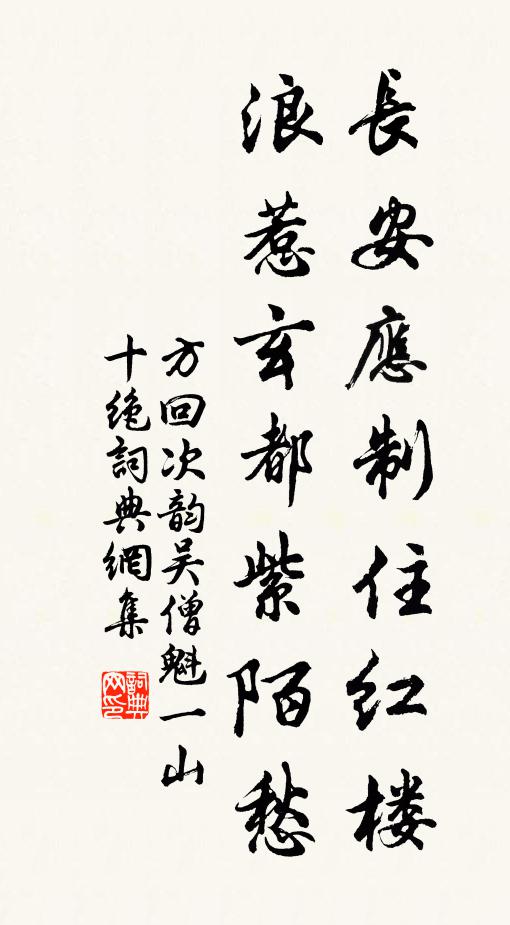 長安應制住红楼
浪惹玄都紫陌愁
方回次韵吴僧魁一山
十绝詞典網集
詞典网印